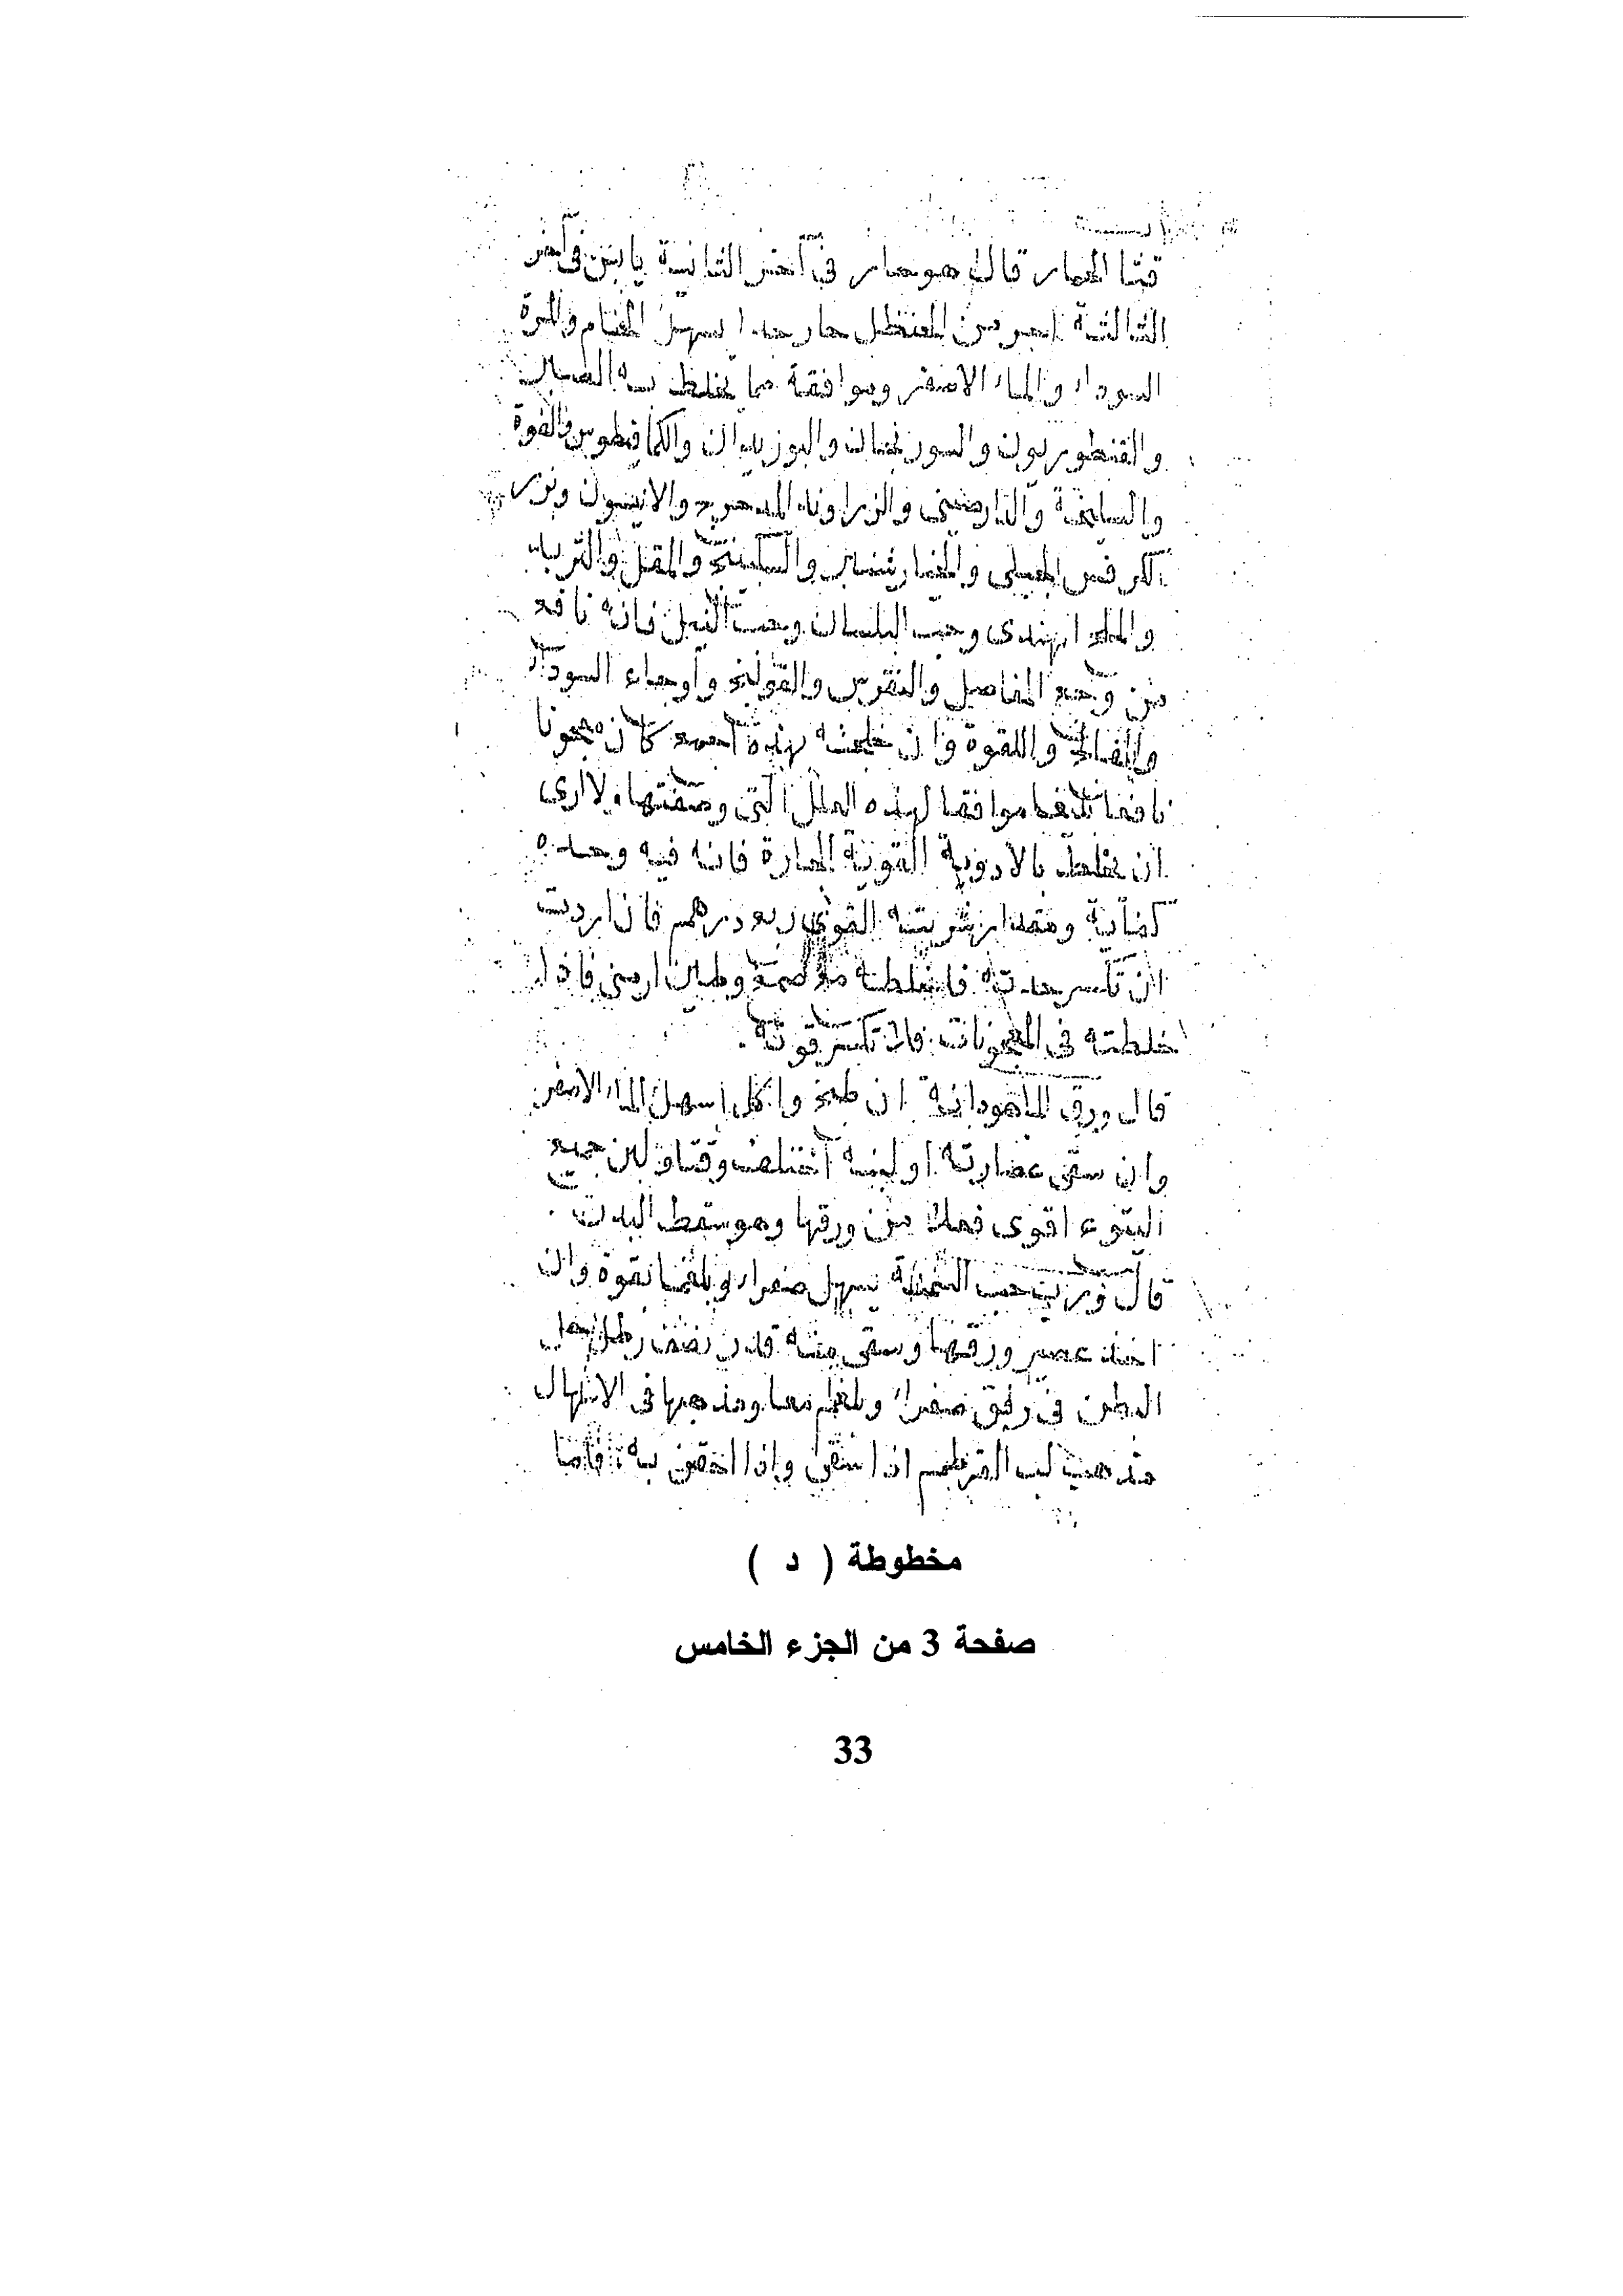 قثا الحمار قال هو حار فى آخر الثانية يابس فى آخر
الثالثة من الحنظل حار جدا يسهل الخام والمرة
السوداء والماء الاصفر وموافقة مما يخلط به الصبر
والقنطوريون والسورنجان والبوزيدان والكمافيطوس والفوة
والسليخة والدارصينى والزراوند المدحرج والانيسون وبزر
الكرفس الجبلى والخيارشنبر والسكبينج والمقل والتربد
والملح الهندى وحب البلسان وحب النيل فانه نافع
من وجع المفاصل والنقرس والقولنج وأوجاع السوداء
والفالج واللقوة وان خلطته بهذه اجمع كان معجونا
نافعا موافقا لهذه العلل التى وصفتها ولا ارى
ان يخلط بالادوية القوية الحارة فانه فيه وحده
كفاية ومقدار شربته القوى ربع درهم فان اردت
ان تكسر حدته فاخلطه مع صمغ وطين ارمنى فاذا
خلطته فى المعجونات فلا تكسر قوته
قال ورق الماهودانة ان طبخ واكل اسهل الماء الاصفر
وان سقى عصارته او لبنه اختلف وقتا ولبن جميع
اليتوع اقوى فعلا من ورقها وهو يسقط البدن
قال حب السمنة يسهل صفراء وبلغما بقوة وان
اخذ عصير ورقها وسقى منه قدر نصف رطل حل
البطن فى رفق صفراء وبلغم معا ومذهبها فى الاسهال
مذهب لب القرطم اذا سقى واذا احتقن به فاما
مخطوطة ( د )
صفحة 3 من الجزء الخامس
33